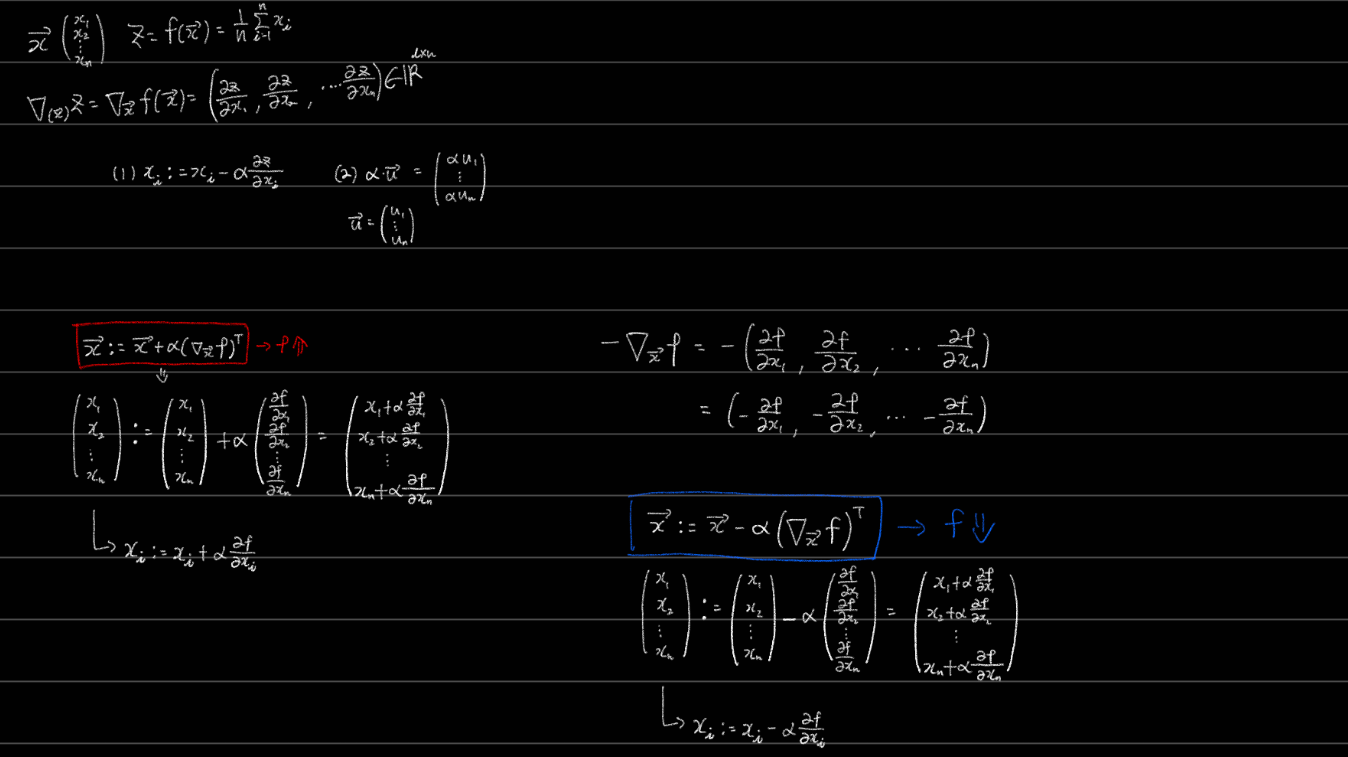 x⃗ (x₁ x₂ ⋮ xₙ) z = f(x⃗) = 1/n Σᵢ₌₁ⁿ xᵢ
∇_(x⃗) z = ∇_x⃗ f(x⃗) = (∂z/∂x₁, ∂z/∂x₂, ... ∂z/∂xₙ) ∈ ℝ^(1×n)
(1) xᵢ := xᵢ - α ∂z/∂xᵢ (2) α·u⃗ = (αu₁ ⋮ αuₙ)
u⃗ = (u₁ ⋮ uₙ)
x⃗ := x⃗ + α(∇_x⃗ f)ᵀ → f ⇑
⇓
(x₁ x₂ ⋮ xₙ) := (x₁ x₂ ⋮ xₙ) + α (∂f/∂x₁ ∂f/∂x₂ ⋮ ∂f/∂xₙ) = (x₁+α ∂f/∂x₁ x₂+α ∂f/∂x₂ ⋮ xₙ+α ∂f/∂xₙ)
↳ xᵢ := xᵢ + α ∂f/∂xᵢ
-∇_x⃗ f = -(∂f/∂x₁, ∂f/∂x₂, ... ∂f/∂xₙ)
= (-∂f/∂x₁, -∂f/∂x₂, ... -∂f/∂xₙ)
x⃗ := x⃗ - α(∇_x⃗ f)ᵀ → f ⇓
(x₁ x₂ ⋮ xₙ) := (x₁ x₂ ⋮ xₙ) - α (∂f/∂x₁ ∂f/∂x₂ ⋮ ∂f/∂xₙ) = (x₁+α ∂f/∂x₁ x₂+α ∂f/∂x₂ ⋮ xₙ+α ∂f/∂xₙ)
↳ xᵢ := xᵢ - α ∂f/∂xᵢ